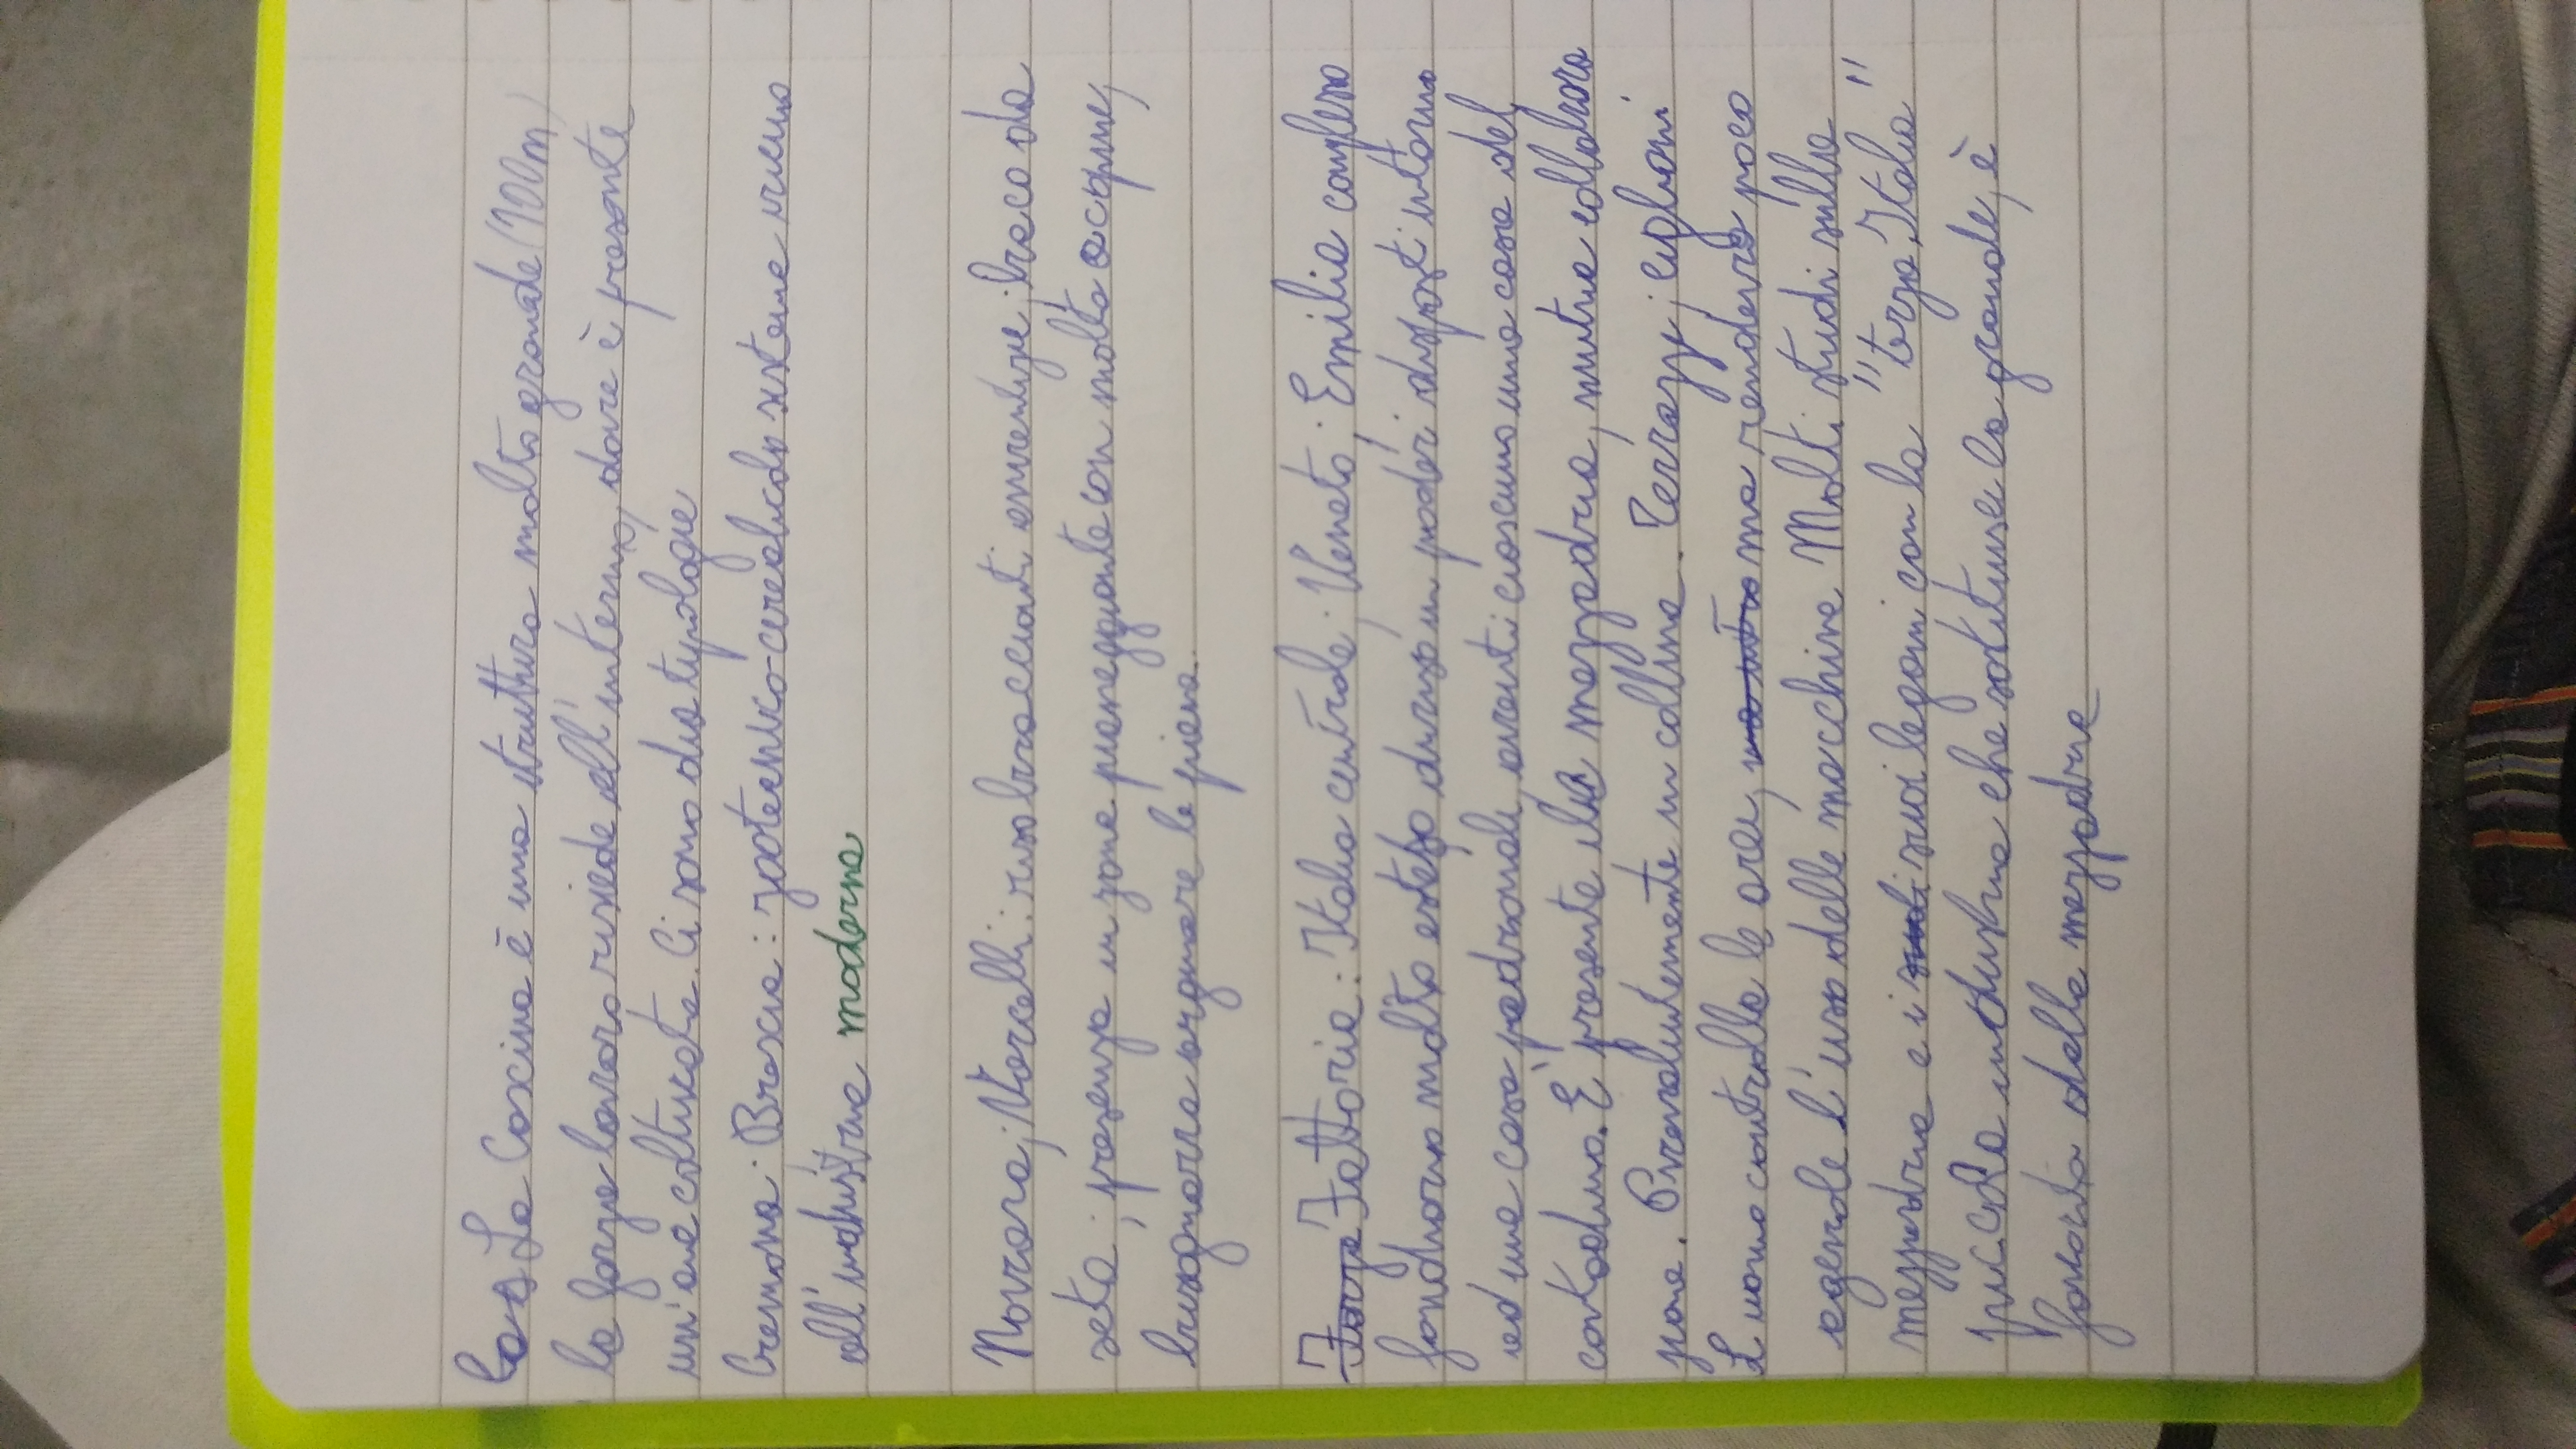 La Cascina è una struttura molto grande (100m)
la forza lavoro risiede all'interno, dove è presente
un'area coltivata. Ci sono due tipologie
Cremona; Brescia: zootecnico-cerealicolo sistema vicino
all'industria moderna
Novara; Vercelli: riso braccianti emerge; baco da
seta; presenza in zone pianeggiante con molta acqua,
bisognava arginare la piena.
Fattoria: Italia centrale; Veneto; Emilia complesso
fondiario molto esteso diviso in poderi disposti intorno
ad una casa padronale, aventi ciascuno una casa del
contadino. E' presente la mezzadria, mentre collaborazione
Prevalentemente in collina. Terrazzi, ciglioni
L'uomo controlla le area, ma rendeva poco
agevole l'uso delle macchine. Molti studi sulla
mezzadria e i suoi legami con la "terza Italia"
piccola industria che sostituisce la grande, è
favorita dalla mezzadria